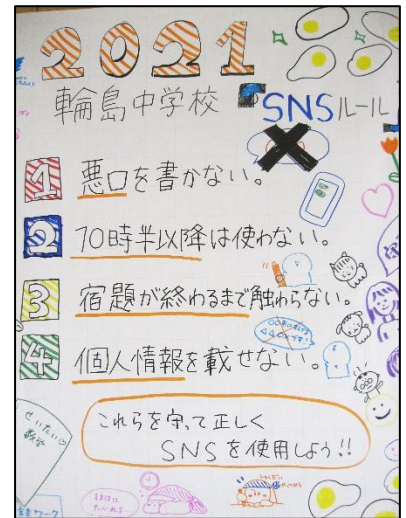 2021
輪島中学校 SNSルール
1 悪口を書かない。
2 10時半以降は使わない。
3 宿題が終わるまで触わらない。
4 個人情報を載せない。
これらを守って正しく
SNSを使用しよう!!